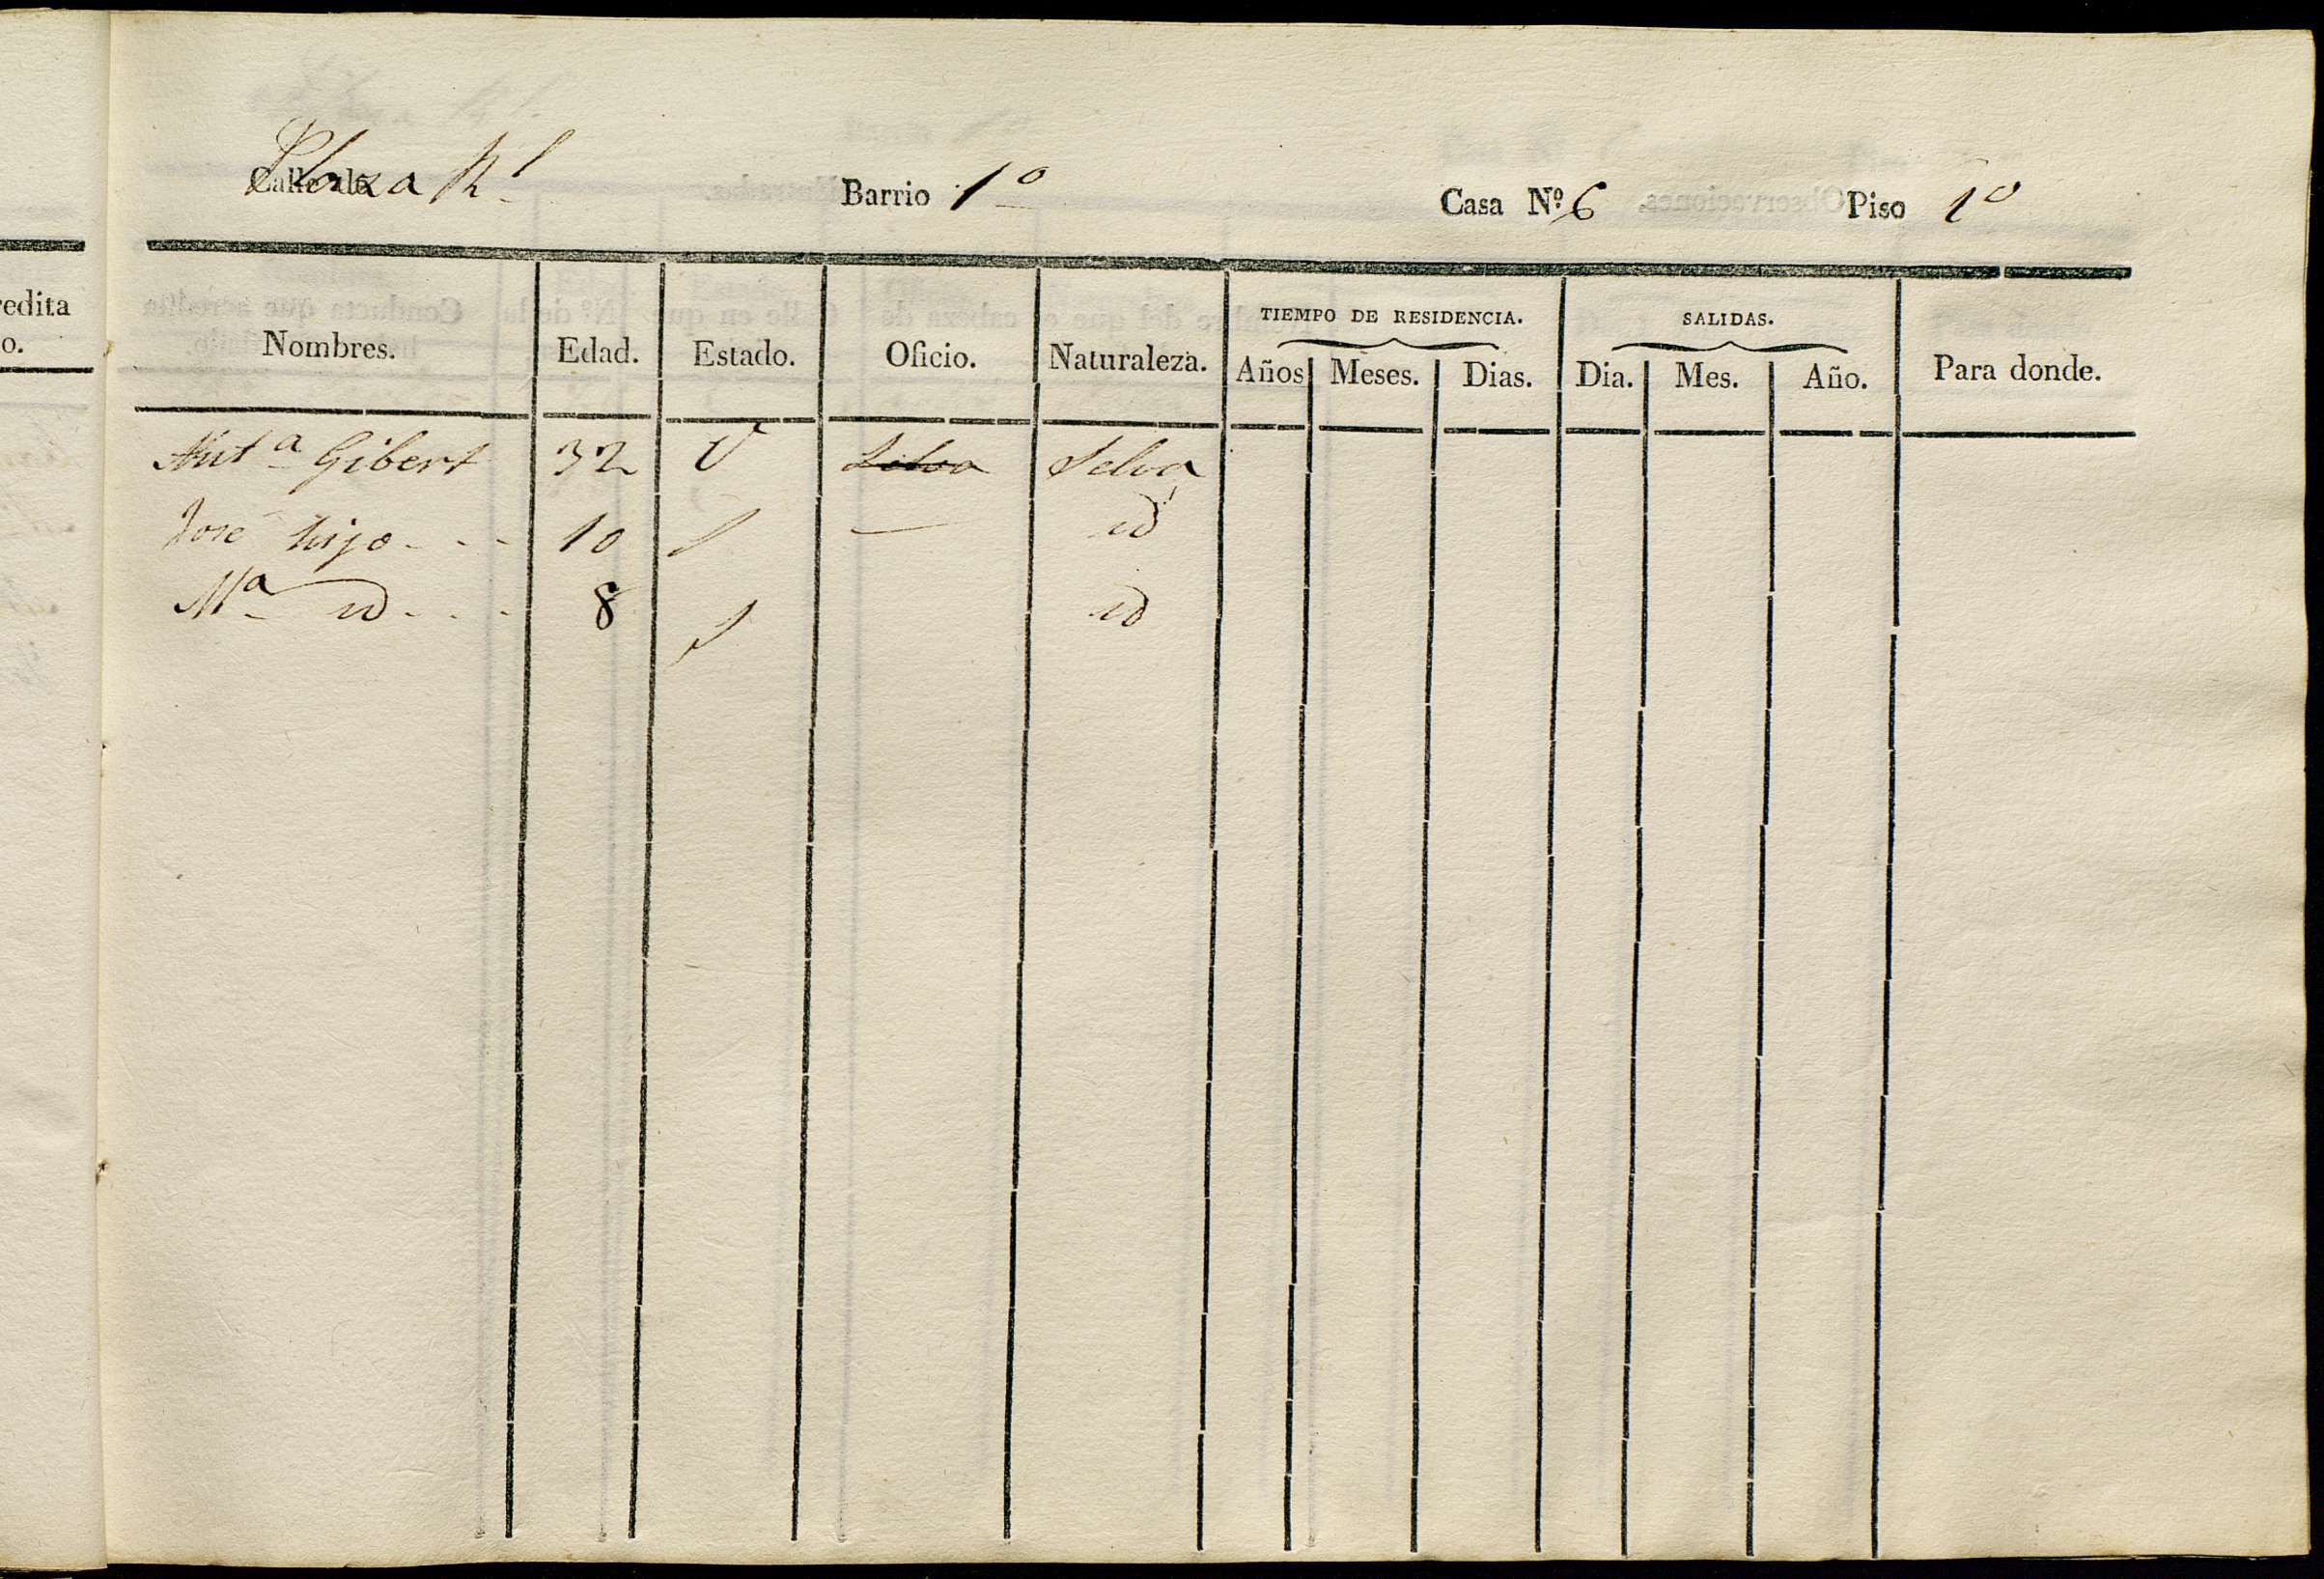 redita
o.
Calle de Plaza Rl Barrio 1o Casa Nº 6 Piso 1o
TIEMPO DE RESIDENCIA. SALIDAS.
Nombres. Edad. Estado. Oficio. Naturaleza. Años Meses. Dias. Dia. Mes. Año. Para donde.
Anta Gibert 32 V Selva Selva
José hijo - - - 10 S — id
Ma id - - - 8 S id